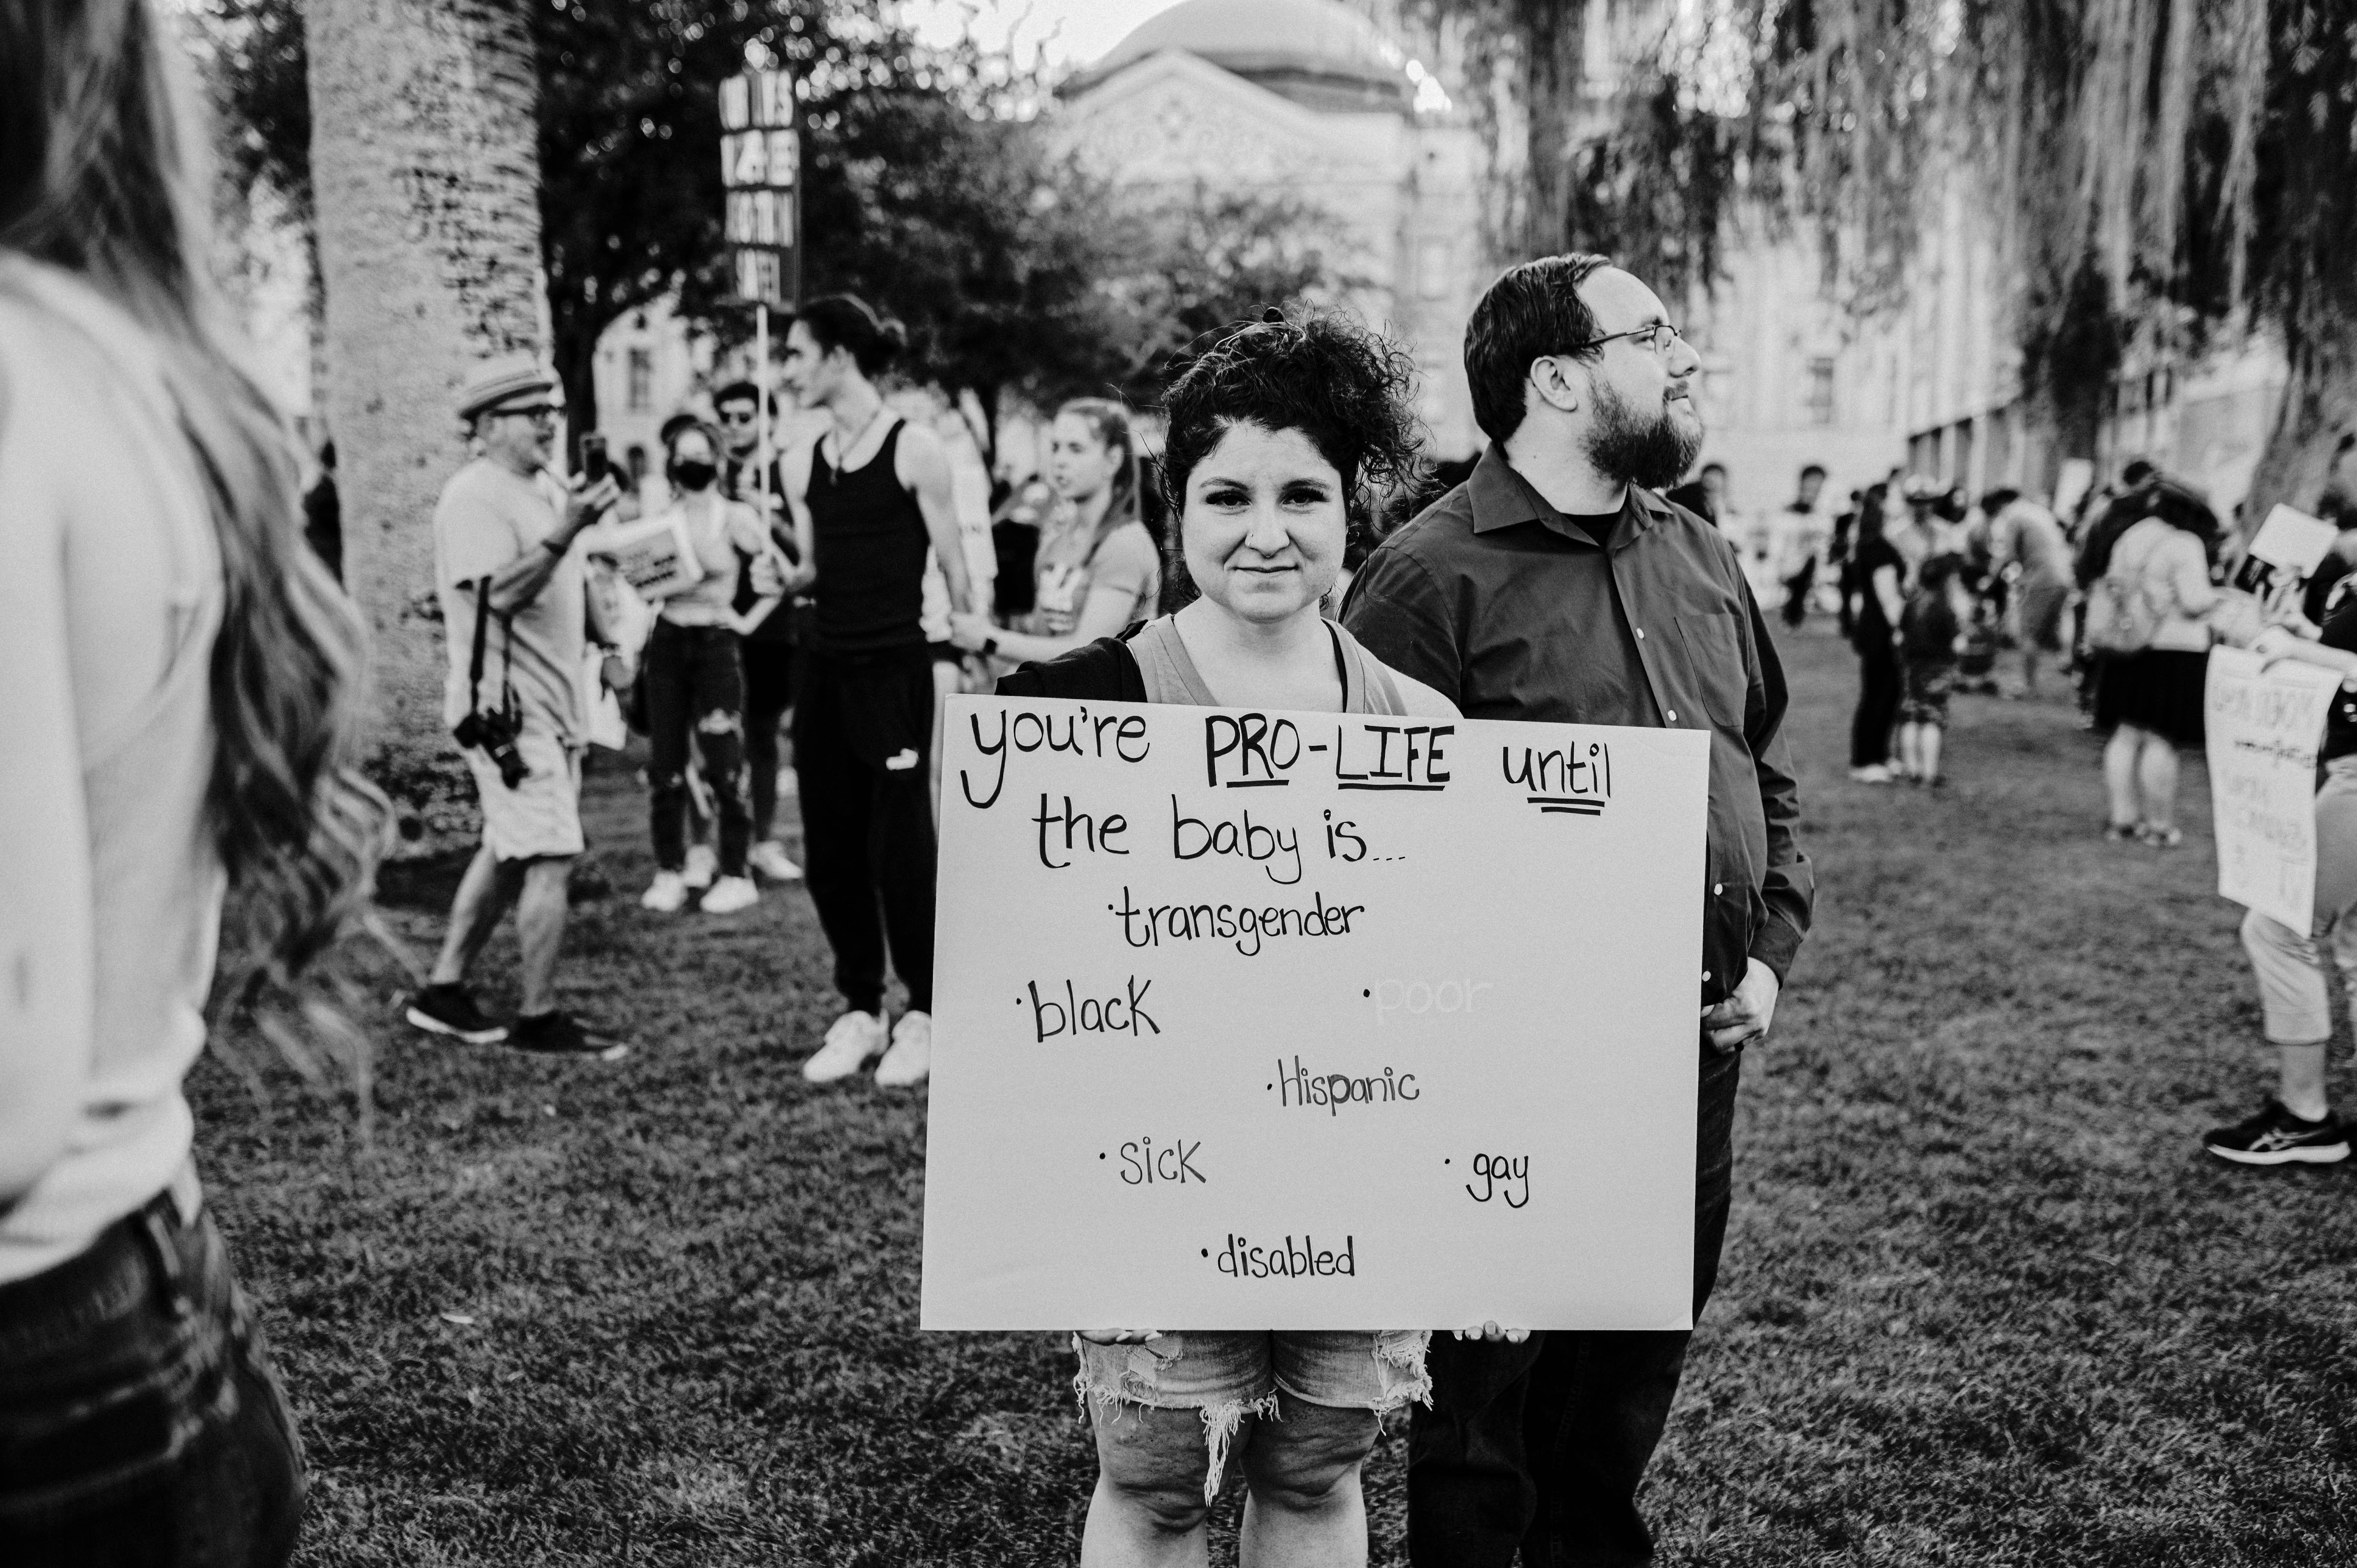 you're PRO-LIFE until
the baby is...
·transgender
·black ·poor
·Hispanic
·sick ·gay
·disabled